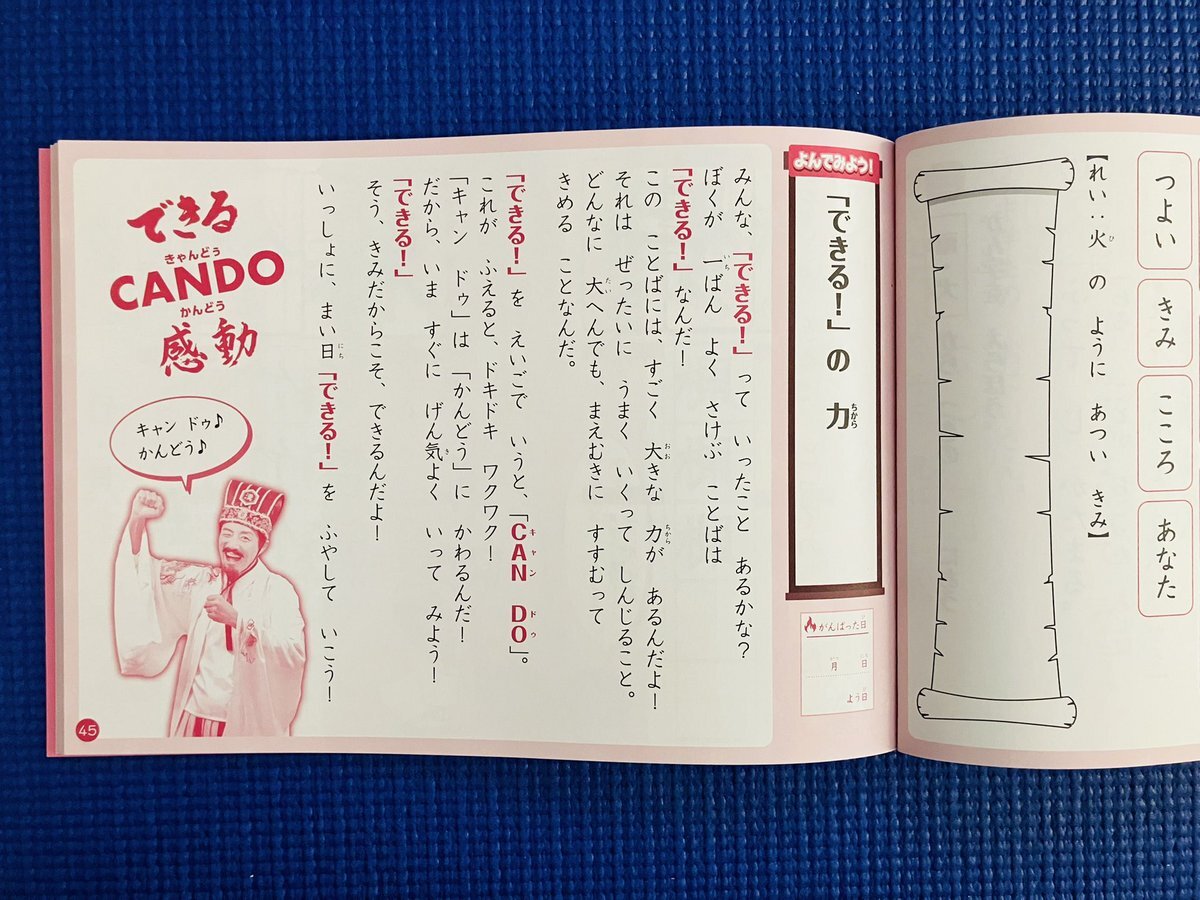 つよい
きみ
こころ
あなた
【れい：火の ように あつい きみ】
ひ
よんでみよう！
「できる！」の 力
ちから
がんばった日
び
月 日
がつ にち
よう日
び
みんな、「できる！」って いったこと あるかな？
ぼくが 一ばん よく さけぶ ことばは
いち
「できる！」なんだ！
この ことばには、すごく 大きな 力が あるんだよ！
おお ちから
それは ぜったいに うまく いくって しんじること。
どんなに 大へんでも、まえむきに すすむって
たい
きめる ことなんだ。
「できる！」を えいごで いうと、「CAN DO」。
キャン ドゥ
これが ふえると、ドキドキ ワクワク！
「キャン ドゥ」は 「かんどう」に かわるんだ！
だから、いま すぐに げん気よく いって みよう！
き
「できる！」
そう、きみだからこそ、できるんだよ！
いっしょに、まい日「できる！」を ふやして いこう！
にち
できる
きゃんどぅ
CANDO
かんどう
感動
キャン ドゥ♪
かんどう♪
45